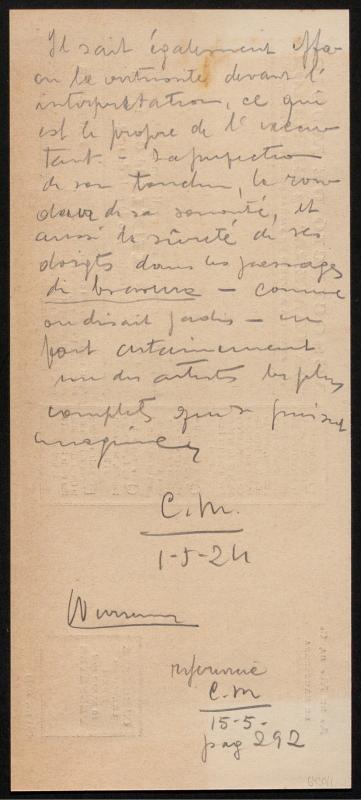 Il sait également effa-
cer la virtuosité devant l'
interprétation, ce qui
est le propre de l'exécu-
tant. - La perfection
de son toucher, la ron-
deur de sa sonorité, et
aussi la sûreté de ses
doigts dans les passages
de bravoure - comme
on disait jadis - en
font certainement
un des artistes les plus
complets qu'on puisse
imaginer
C.M.
1-5-24
C.M
15-5-
pag 292